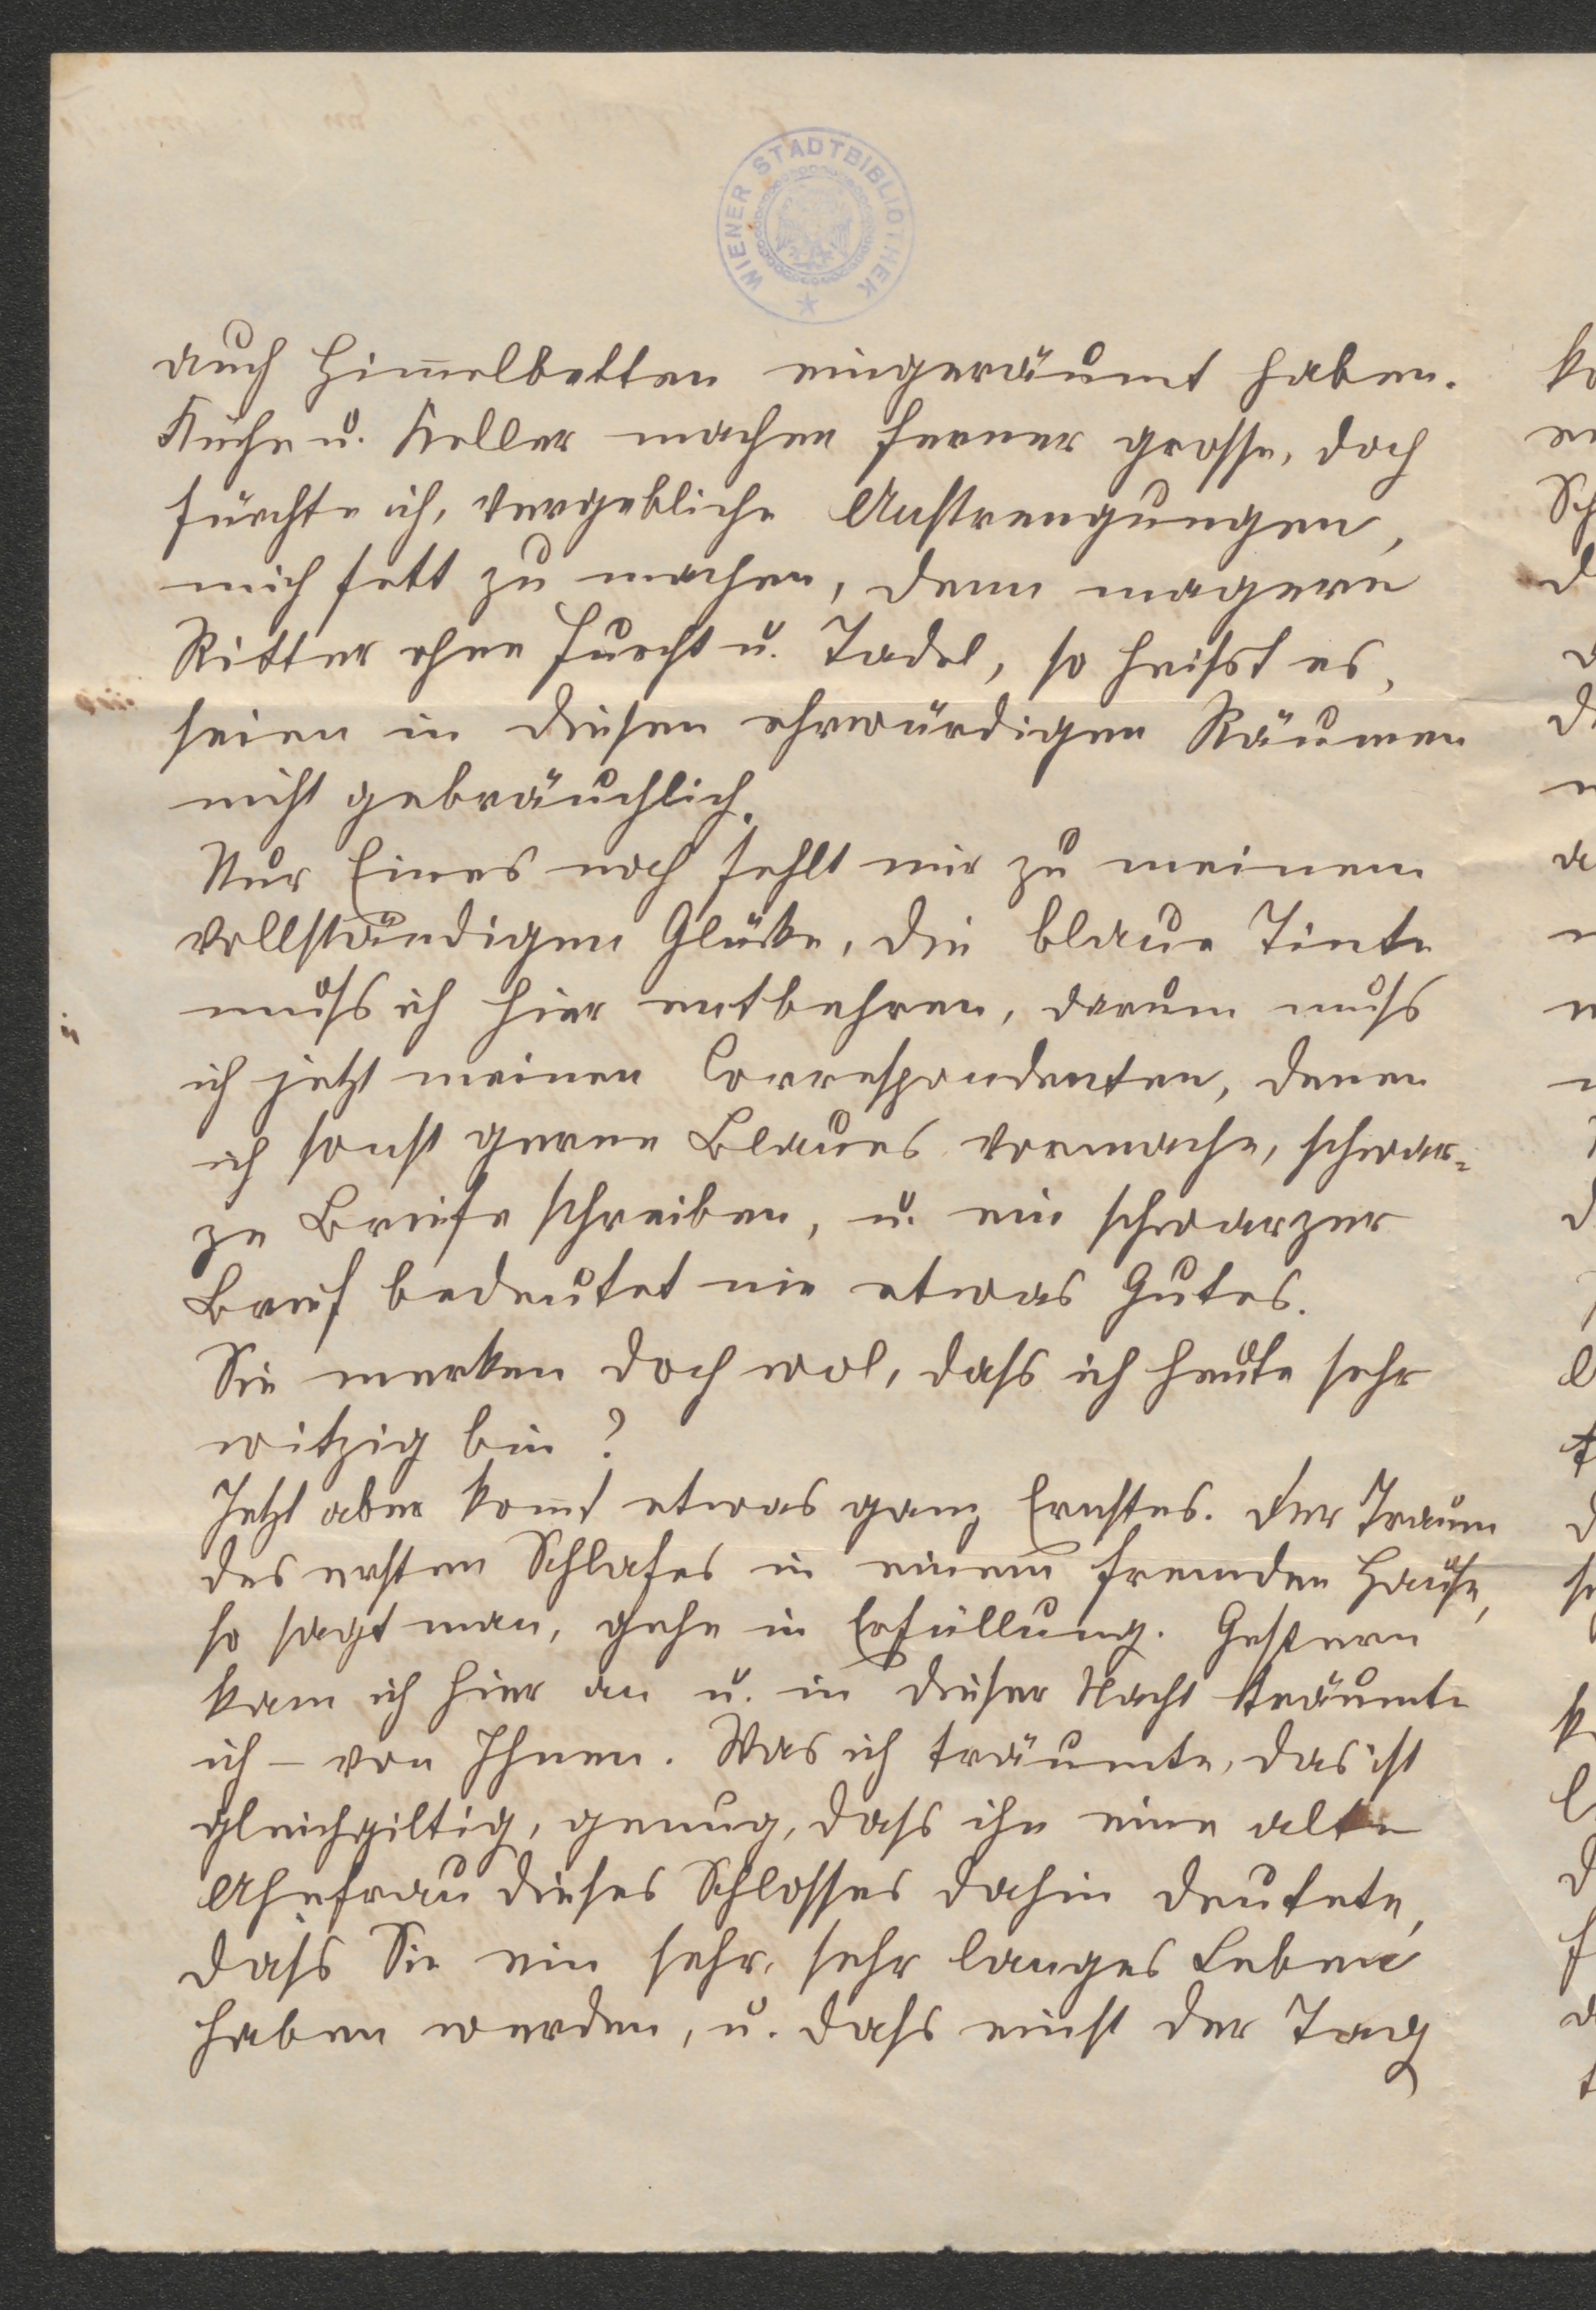 WIENER STADTBIBLIOTHEK
auch Him̅elbetten eingeräumt haben.
Küche u. Keller machen ferner grosse, doch
fürchte ich, vergebliche Anstrengungen,
mich fett zu machen, denn magere
Ritter ohne Furcht u. Tadel, so heisst es,
seien in diesen ehrwürdigen Räumen
nicht gebräuchlich.
Nur Eines noch fehlt mir zu meinem
vollständigen Glücke, die blaue Tinte
muss ich hier entbehren, darum muss
ich jetzt meinen Correspondenten, denen
ich sonst gerne Blaues vormache, schwar-
ze Briefe schreiben, u. ein schwarzer
Brief bedeutet nie etwas Gutes.
Sie merken doch wol, dass ich heute sehr
witzig bin?
Jetzt aber kom̅t etwas ganz Ernstes. Der Traum
des ersten Schlafes in einem fremden Hause,
so sagt man, gehe in Erfüllung. Gestern
kam ich hier an u. in dieser Nacht träumte
ich – von Ihnen. Was ich träumte, das ist
gleichgiltig, genug, dass ihn eine alte
Ahnfrau dieses Schlosses dahin deutete,
dass Sie ein sehr, sehr langes Leben
haben werden, u. dass einst der Tag